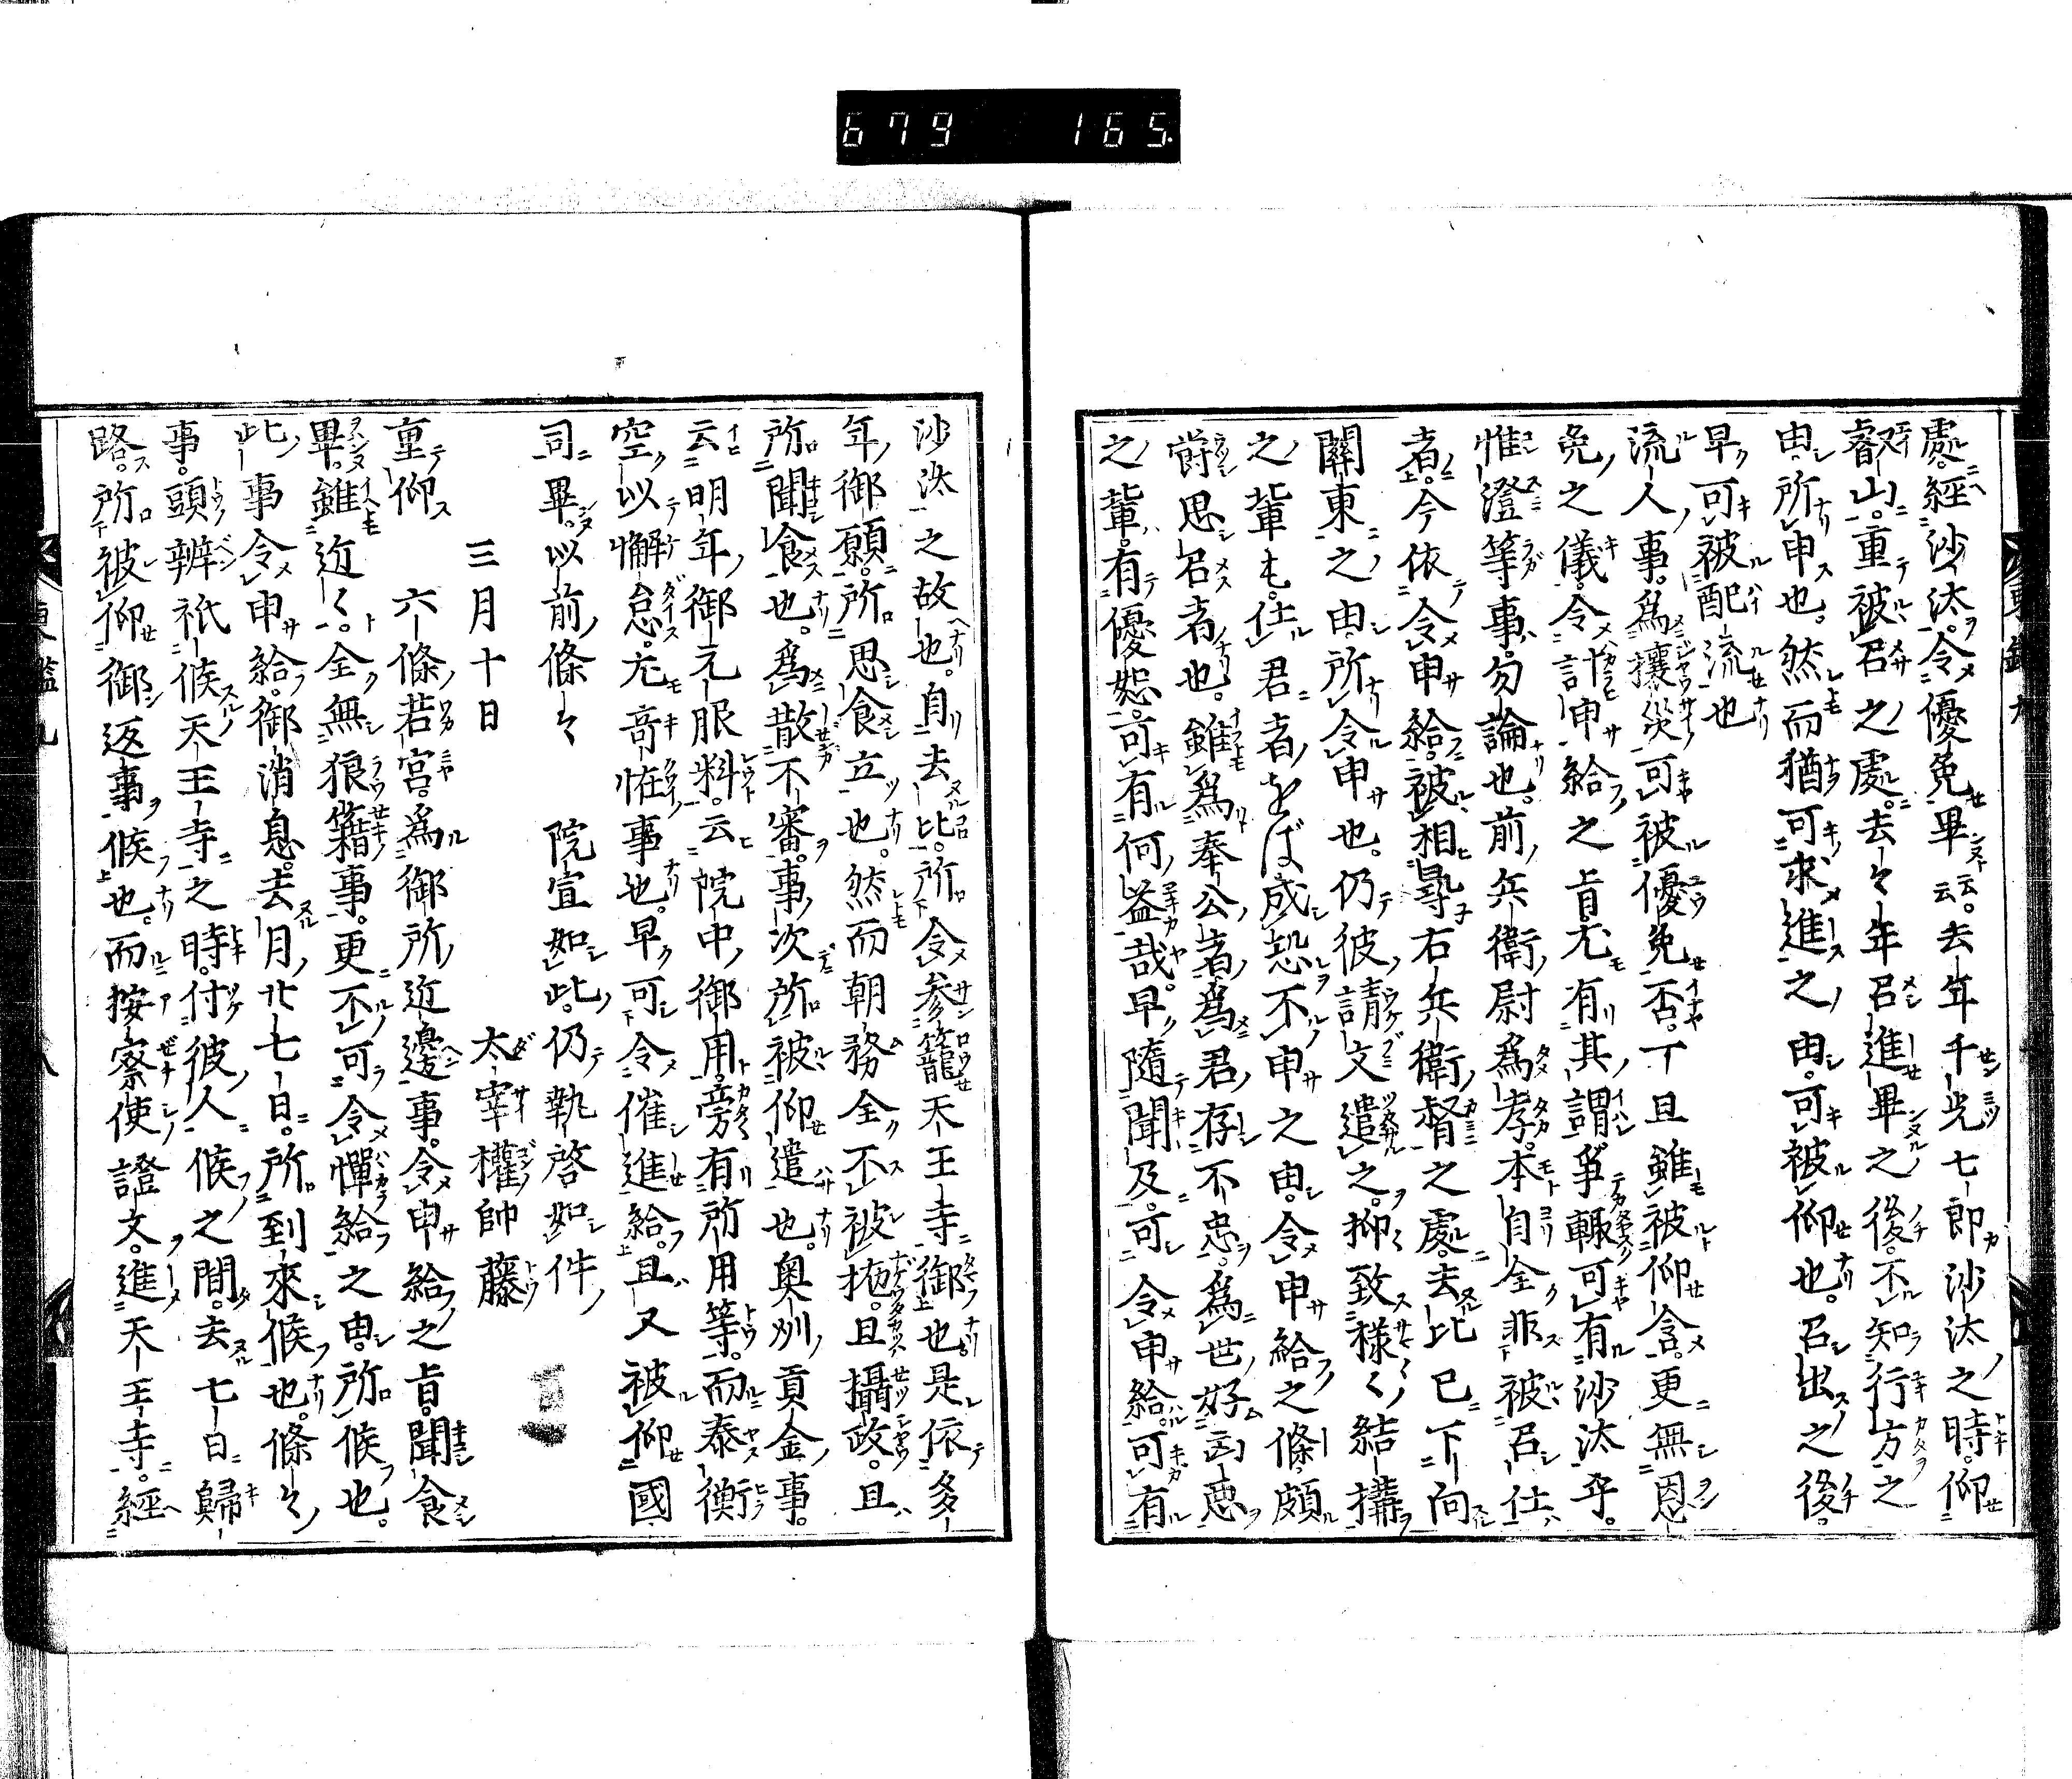 679 165
處經沙汰令優免畢云云去年千光七郎沙汰之時仰
叡山重被召之處去去年召進畢之後不知行方之
由所申也然而猶可求進之由可被仰也召出之後
早可被配流也
流人事爲攘災可被優免否丁且雖被仰含更無恩
免之儀令計申給之旨尤有其謂爭輙可有沙汰乎
惟澄等事勿論也前兵衛尉爲孝本自全非被召仕
者今依令申給被相尋右兵衛督之處去比已下向
關東之由所令申也仍彼請文遣之抑致様〱結搆
之輩も仕君者をば成恐不申之由令申給之條頗
爵思召者也雖爲奉公者爲君存不忠爲世好凶惡
之輩有優恕可有何益哉早隨聞及可令申給可有
沙汰之故也自去比所令參籠天王寺御也是依多
年御願所思食立也然而朝務全不被抛且攝政且
所聞食也爲散不審事次所被仰遣也奥州貢金事
云明年御元服料云院中御用旁有所用等而泰衡
空以懈怠尤奇恠事也早可令催進給且又被仰國
司畢以前條々 院宣如此仍執啓如件
三月十日 太宰權帥藤
重仰
六條若宮爲御所近邊事令申給之旨聞食
畢雖近〱全無狼籍事更不可令憚給之由所候也
此事令申給御消息去月廿七日所到來候也條々
事頭辨祇候天王寺之時付彼人候之間去七日歸
路所被仰御返事候也而按察使證文進天王寺經